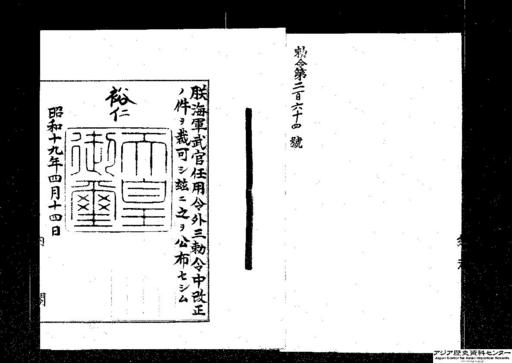 勅令第二百六十四號
朕海軍武官任用令外三勅令中改正
ノ件ヲ裁可シ玆ニ之ヲ公布セシム
裕仁
天皇御璽
昭和十九年四月十四日
内閣
アジア歴史資料センター
Japan Center for Asian Historical Records